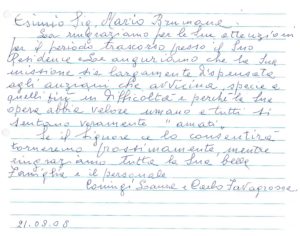 Esimio Sig. Mario
La ringraziamo per le Sue attenzioni
per il periodo trascorso presso il Suo
Residence e Le auguriamo che la Sua
missione sia largamente dispensata
agli anziani che avvicina, specie a
quelli più in difficoltà e perchè la Sua
opera abbia valore umano e tutti si
sentano veramente "amati".
Se il Signore ce lo consentirà
torneremo prossimamente, mentre
ringraziamo tutta la Sua bella
Famiglia e il personale
Coniugi e Carlo
21.08.08